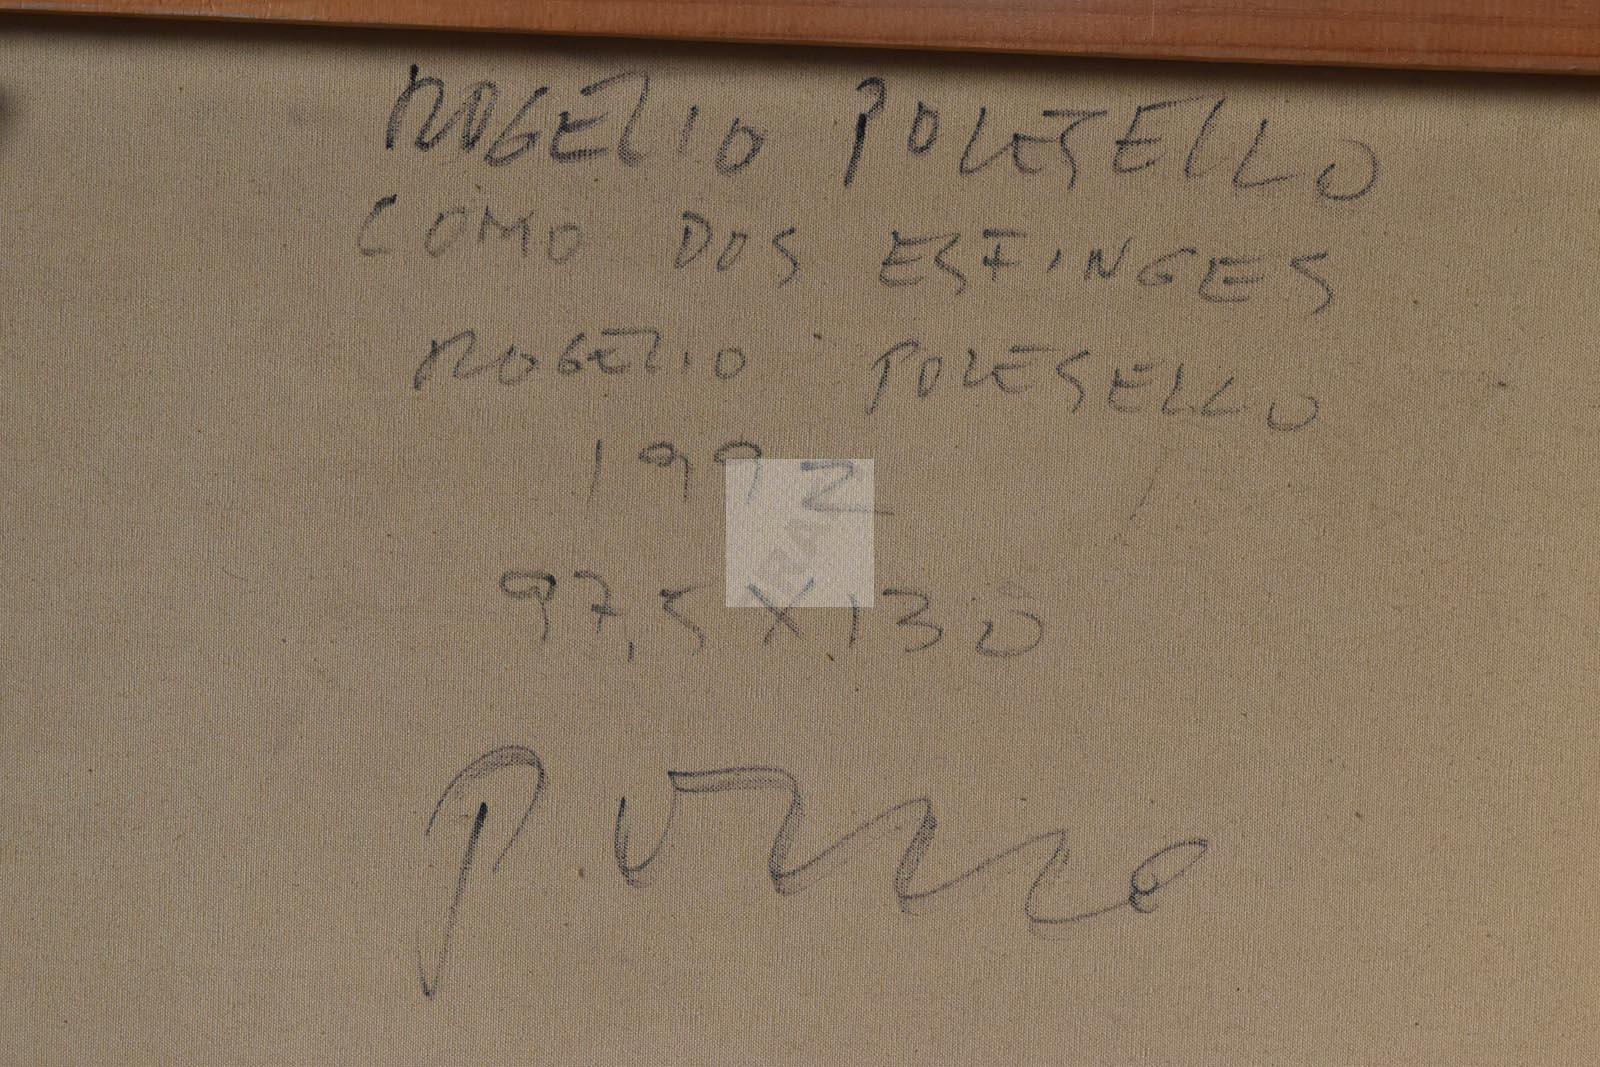 ROGELIO POLESELLO
COMO DOS ESFINGES
ROGELIO POLESELLO
1992
97,5 X 130